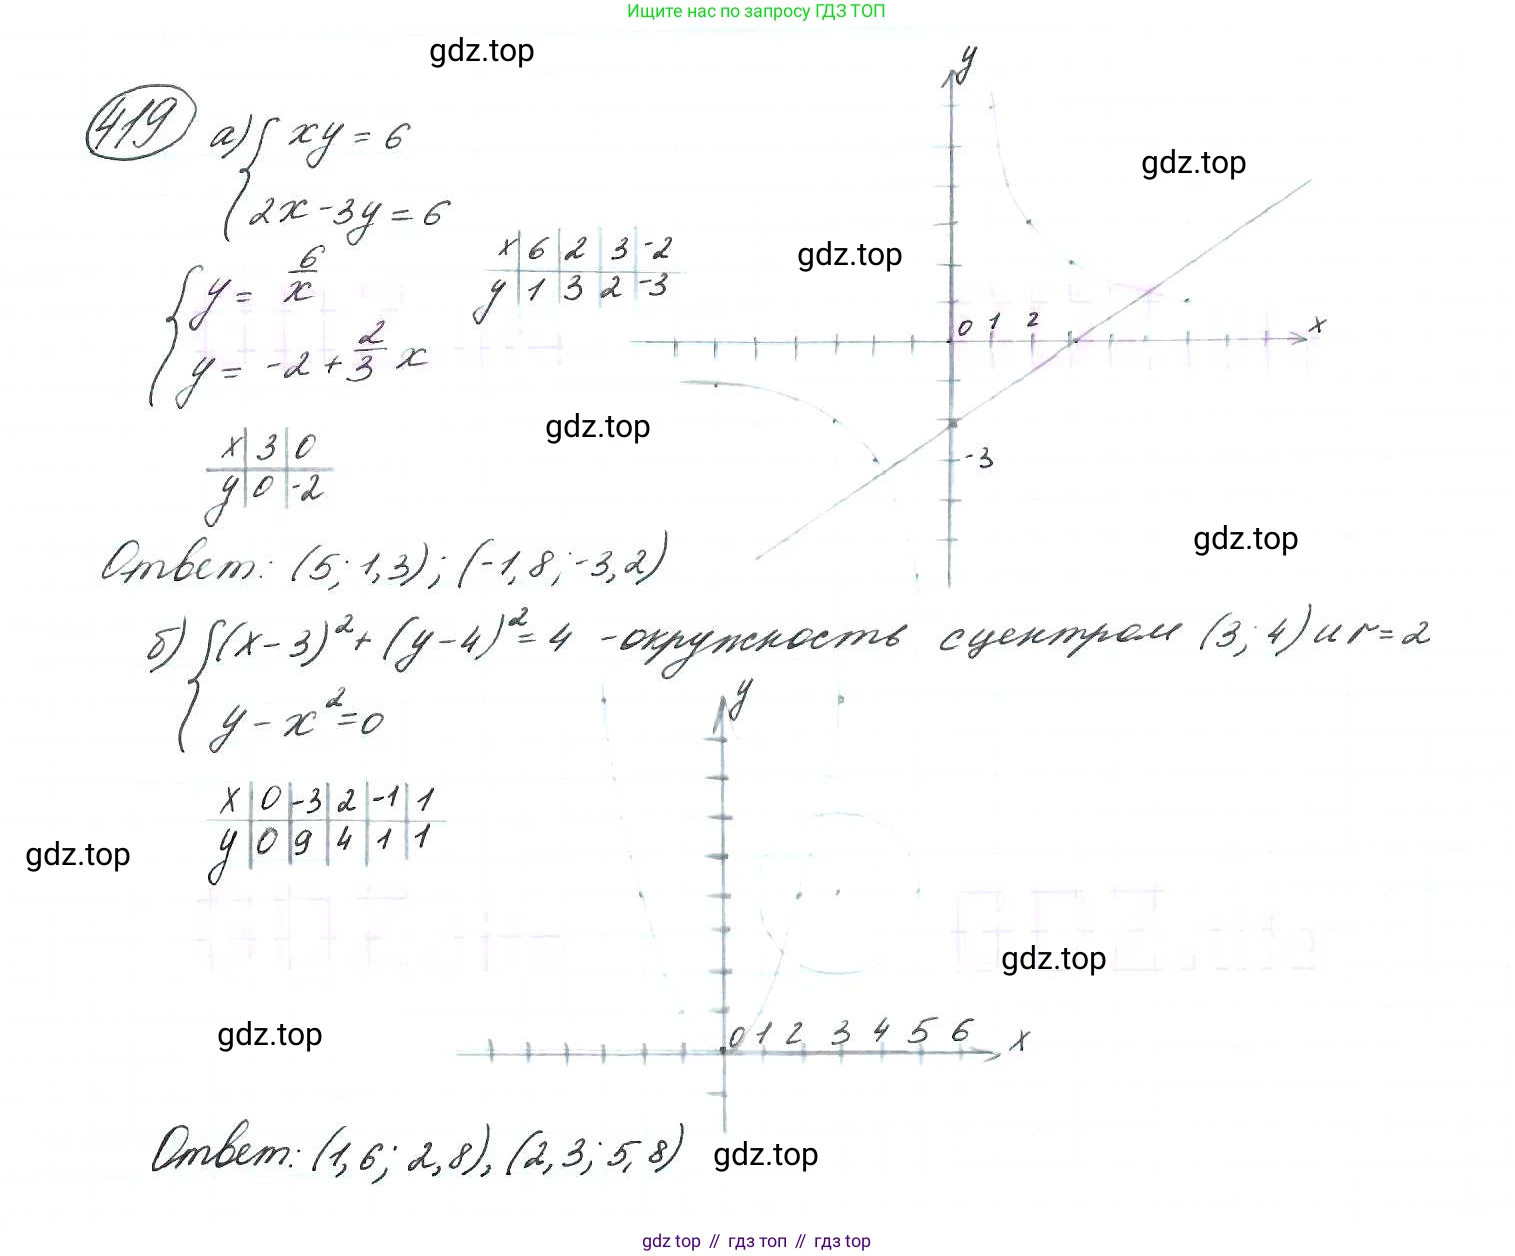 Ищите нас по запросу ГДЗ ТОП
gdz.top
419 а) { xy = 6
2x - 3y = 6
gdz.top
gdz.top
{ y = 6/x
y = -2 + 2/3 x
x | 6 | 2 | 3 | -2
y | 1 | 3 | 2 | -3
y
0 1 2 x
-3
gdz.top
x | 3 | 0
y | 0 | -2
gdz.top
Ответ: (5; 1,3); (-1,8; -3,2)
б) { (x-3)² + (y-4)² = 4 - окружность с центром (3; 4) и r = 2
y - x² = 0
y
x | 0 | -3 | 2 | -1 | 1
y | 0 | 9 | 4 | 1 | 1
gdz.top
gdz.top
gdz.top
0 1 2 3 4 5 6 x
Ответ: (1,6; 2,8), (2,3; 5,8)
gdz.top
gdz top // гдз топ // gdz top